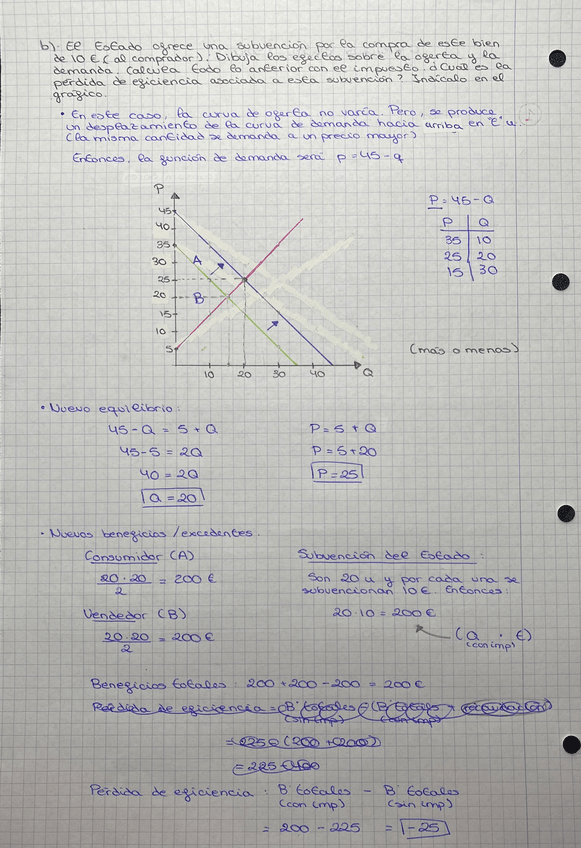 b). El Estado ofrece una subvención por la compra de este bien
de 10 € (al comprador). Dibuja los efectos sobre la oferta y la
demanda. Calcula todo lo anterior con el impuesto. ¿Cuál es la
pérdida de eficiencia asociada a esta subvención? Indícalo en el
gráfico.
• En este caso, la curva de oferta no varía. Pero, se produce
un desplazamiento de la curva de demanda hacia arriba en "t" u.
(la misma cantidad se demanda a un precio mayor)
Entonces, la función de demanda será: p = 45 - q
P
45
40
35
30
25
20
15
10
5
A
B
10 20 30 40 Q
P = 45 - Q
P Q
35 10
25 20
15 30
(más o menos)
• Nuevo equilibrio:
45 - Q = 5 + Q
45 - 5 = 2Q
40 = 2Q
Q = 20
P = 5 + Q
P = 5 + 20
P = 25
• Nuevos beneficios / excedentes.
Consumidor (A)
20 · 20 / 2 = 200 €
Vendedor (B)
20 · 20 / 2 = 200 €
Subvención del Estado:
Son 20 u y por cada una se
subvencionan 10 €. Entonces:
20 · 10 = 200 €
(Q · t)
(con imp)
Beneficios totales: 200 + 200 - 200 = 200 €
Pérdida de eficiencia = (B totales - (B totales + recaudación)
(sin imp) (con imp)
= 225 - (200 + 200)
= 225 - 400
Pérdida de eficiencia: B totales - B totales
(con imp) (sin imp)
= 200 - 225 = -25